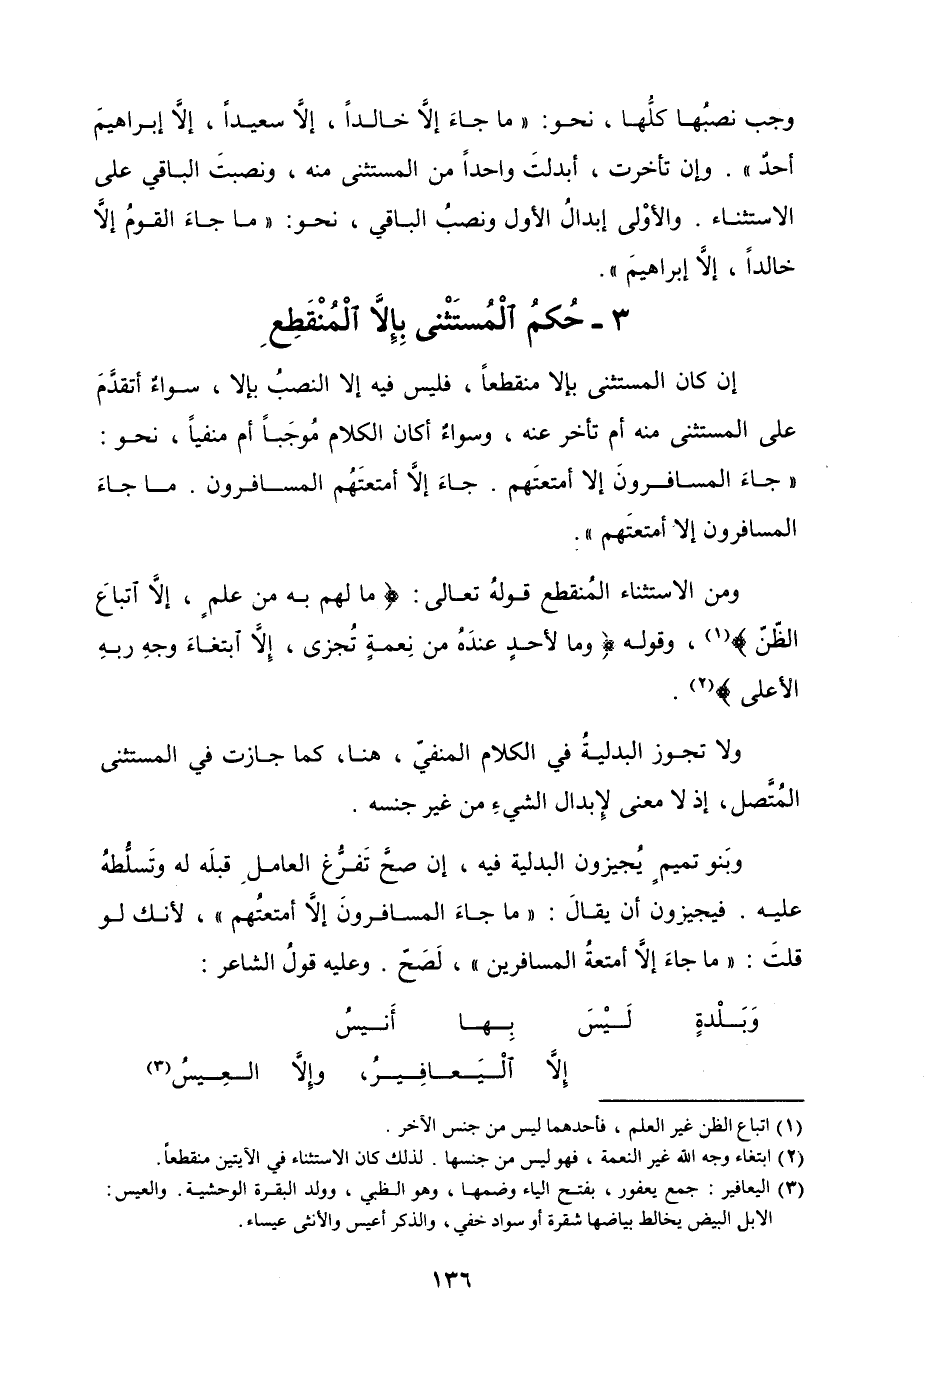 وجب نصبُها كلُّها ، نحو: « ما جاءَ إلَّا خالداً ، إلَّا سعيداً ، إلَّا إبراهيمَ
أحدٌ » . وإن تأخرت ، أبدلتَ واحداً من المستثنى منه ، ونصبتَ الباقي على
الاستثناء . والأوْلى إبدالُ الأول ونصبُ الباقي ، نحو: « ما جاءَ القومُ إلَّا
خالداً ، إلَّا إبراهيمَ ».
٣ - حُكمُ ٱلْمُستَثْنى بِإلَّا ٱلْمُنْقَطِعِ
إن كان المستثنى بإلا منقطعاً ، فليس فيه إلا النصبُ بإلا ، سواءٌ أتقدَّمَ
على المستثنى منه أم تأخر عنه ، وسواءٌ أكان الكلام مُوجَباً أم منفياً ، نحو :
« جاءَ المسافرونَ إلا أمتعتَهم . جاءَ إلَّا أمتعتَهُم المسافرون . ما جاءَ
المسافرون إلا أمتعتَهم ».
ومن الاستثناء المُنقطع قولهُ تعالى : ﴿ ما لهم به من علمٍ ، إلَّا ٱتباعَ
الظّنّ ﴾(١) ، وقوله ﴿ وما لأحدٍ عندَهُ من نِعمةٍ تُجزى ، إلَّا ٱبتغاءَ وجهِ ربهِ
الأعلى ﴾(٢) .
ولا تجوز البدليةُ في الكلام المنفيّ ، هنا، كما جازت في المستثنى
المُتَّصل، إذ لا معنى لإبدال الشيءِ من غير جنسه .
وبَنو تميمٍ يُجيزون البدلية فيه ، إن صحَّ تَفرُّغ العاملِ قبلَه له وتَسلُّطهُ
عليه . فيجيزون أن يقالَ : « ما جاءَ المسافرونَ إلَّا أمتعتُهم » ، لأنك لو
قلتَ : « ما جاءَ إلَّا أمتعةُ المسافرين » ، لَصَحّ . وعليه قولُ الشاعر :
وَبَلْدةٍ لَيْسَ بِها أَنيسُ
إلَّا ٱلْيَعافِيرُ، وإلَّا العِيسُ(٣)
(١) اتباع الظن غير العلم ، فأحدهما ليس من جنس الآخر .
(٢) ابتغاء وجه الله غير النعمة ، فهو ليس من جنسها . لذلك كان الاستثناء في الآيتين منقطعاً.
(٣) اليعافير : جمع يعفور ، بفتح الياء وضمها ، وهو الظبي ، وولد البقرة الوحشية . والعيس :
الابل البيض يخالط بياضها شقرة أو سواد خفي ، والذكر أعيس والأنثى عيساء .
١٣٦